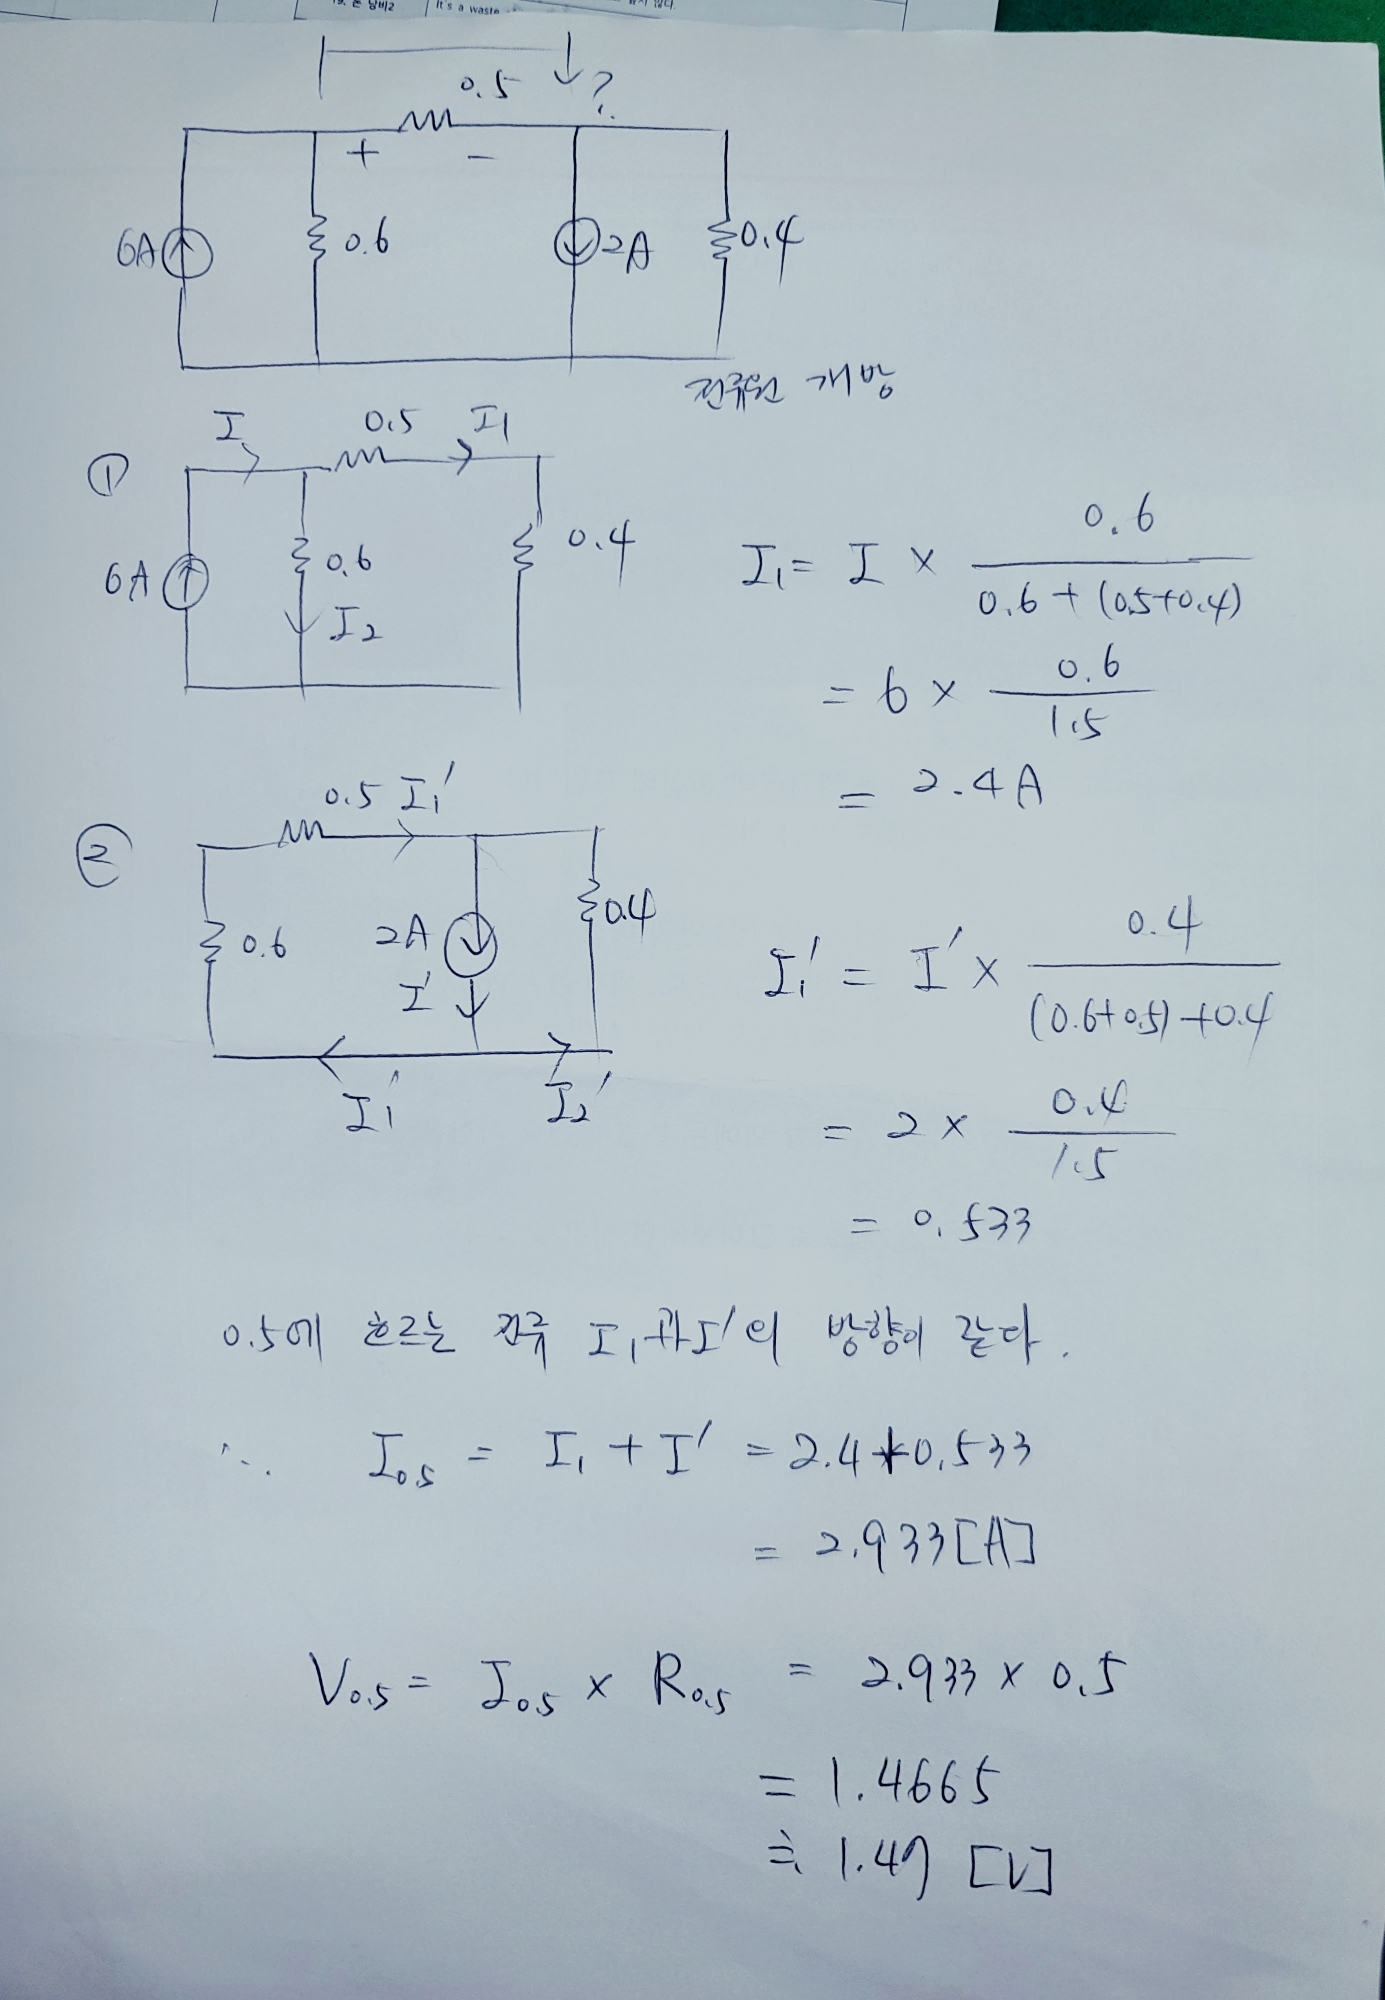 19. 돈 낭비2
It's a waste
0.5
?
+ -
6A
0.6
2A
0.4
전류원 개방
①
I
0.5
I₁
6A
0.6
I₂
0.4
I₁ = I × 0.6 / 0.6 + (0.5+0.4)
= 6 × 0.6 / 1.5
= 2.4A
②
0.5 I₁'
0.6
2A
I'
0.4
I₁'
I₂'
I₁' = I' × 0.4 / (0.6+0.5)+0.4
= 2 × 0.4 / 1.5
= 0.533
0.5에 흐르는 전류 I₁과 I'의 방향이 같다.
∴ I₀.₅ = I₁ + I' = 2.4 + 0.533
= 2.933 [A]
V₀.₅ = I₀.₅ × R₀.₅ = 2.933 × 0.5
= 1.4665
≒ 1.47 [V]